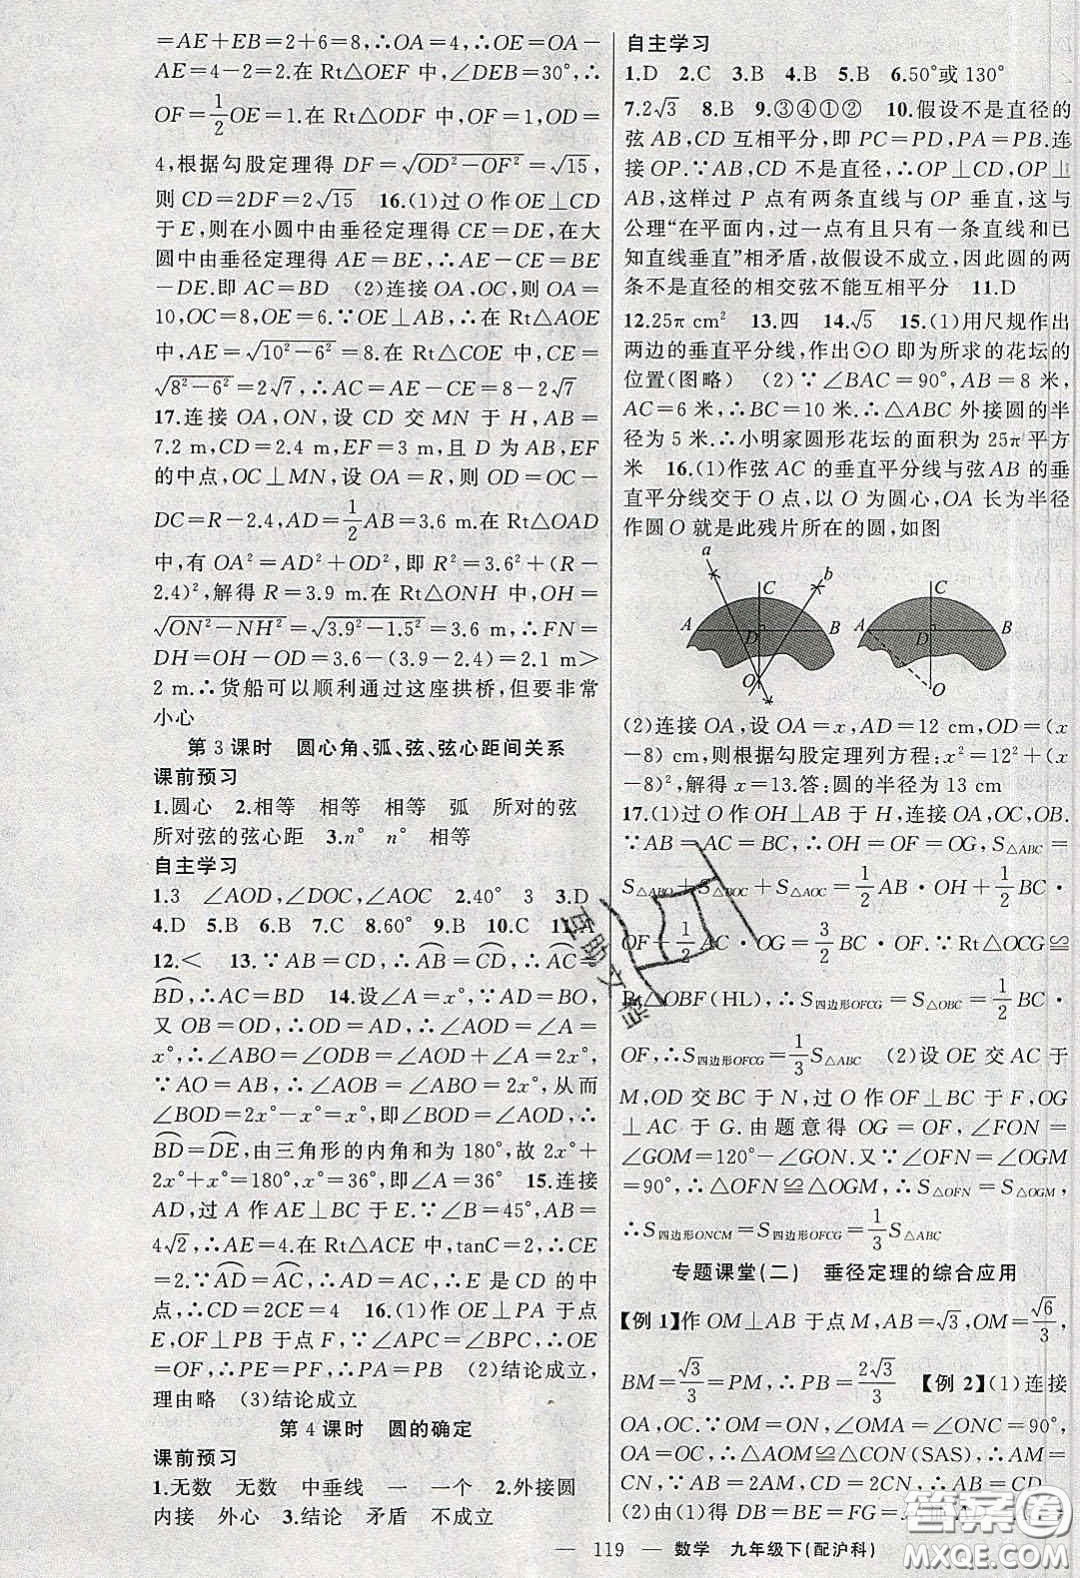 =AE+EB=2+6=8,∴OA=4,∴OE=OA-
AE=4-2=2.在 Rt△OEF 中,∠DEB=30°,∴
OF=1/2 OE=1.在 Rt△ODF 中,OF=1,OD=
4,根据勾股定理得 DF=√(OD²-OF²)=√15,
则 CD=2DF=2√15 16.(1)过 O 作 OE⊥CD
于 E,则在小圆中由垂径定理得 CE=DE,在大
圆中由垂径定理得 AE=BE,∴AE-CE=BE
-DE.即 AC=BD (2)连接 OA,OC,则 OA=
10,OC=8,OE=6.∵OE⊥AB,∴在 Rt△AOE
中,AE=√(10²-6²)=8.在 Rt△COE 中,CE=
√(8²-6²)=2√7,∴AC=AE-CE=8-2√7
17.连接 OA,ON,设 CD 交 MN 于 H,AB=
7.2 m,CD=2.4 m,EF=3 m,且 D 为 AB,EF
的中点,OC⊥MN,设 OA=R,则 OD=OC-
DC=R-2.4,AD=1/2 AB=3.6 m.在 Rt△OAD
中,有 OA²=AD²+OD²,即 R²=3.6²+(R-
2.4)²,解得 R=3.9 m.在 Rt△ONH 中,OH=
√(ON²-NH²)=√(3.9²-1.5²)=3.6 m,∴FN=
DH=OH-OD=3.6-(3.9-2.4)=2.1 m>
2 m.∴货船可以顺利通过这座拱桥,但要非常
小心
第 3 课时 圆心角、弧、弦、弦心距间关系
课前预习
1.圆心 2.相等 相等 相等 弧 所对的弦
所对弦的弦心距 3.n° n° 相等
自主学习
1.3 ∠AOD,∠DOC,∠AOC 2.40° 3 3.D
4.D 5.B 6.B 7.C 8.60° 9.B 10.C 11.
12.< 13.∵AB=CD,∴AB=CD,∴AC=
BD,∴AC=BD 14.设∠A=x°,∵AD=BO,
又 OB=OD,∴OD=AD,∴∠AOD=∠A=
x°,∴∠ABO=∠ODB=∠AOD+∠A=2x°.
∵AO=AB,∴∠AOB=∠ABO=2x°,从而
∠BOD=2x°-x°=x°,即∠BOD=∠AOD,∴
BD=DE,由三角形的内角和为 180°,故 2x°+
2x°+x°=180°,x°=36°,即∠A=36° 15.连接
AD,过 A 作 AE⊥BC 于 E.∵∠B=45°,AB=
4√2,∴AE=4.在 Rt△ACE 中,tanC=2,∴CE
=2.∵AD=AC,∴AD=AC,∴E 是 CD 的中
点,∴CD=2CE=4 16.(1)作 OE⊥PA 于点
E,OF⊥PB 于点 F,∵∠APC=∠BPC,∴OE
=OF,∴PE=PF,∴PA=PB (2)结论成立,
理由略 (3)结论成立
第 4 课时 圆的确定
课前预习
1.无数 无数 中垂线 一 一个 2.外接圆
内接 外心 3.结论 矛盾 不成立
自主学习
1.D 2.C 3.B 4.B 5.B 6.50°或 130°
7.2√3 8.B 9.③④①② 10.假设不是直径的
弦 AB,CD 互相平分,即 PC=PD,PA=PB.连
接 OP.∵AB,CD 不是直径,∴OP⊥CD,OP⊥
AB,这样过 P 点有两条直线与 OP 垂直,这与
公理“在平面内,过一点有且只有一条直线和已
知直线垂直”相矛盾,故假设不成立,因此圆的两
条不是直径的相交弦不能互相平分 11.D
12.25π cm² 13.四 14.√5 15.(1)用尺规作出
两边的垂直平分线,作出⊙O 即为所求的花坛的
位置(图略) (2)∵∠BAC=90°,AB=8 米,
AC=6 米,∴BC=10 米.∴△ABC 外接圆的半
径为 5 米.∴小明家圆形花坛的面积为 25π 平方
米 16.(1)作弦 AC 的垂直平分线与弦 AB 的垂
直平分线交于 O 点,以 O 为圆心,OA 长为半径
作圆 O 就是此残片所在的圆,如图
a b C A D B O
C A D B O
(2)连接 OA,设 OA=x,AD=12 cm,OD=(x
-8) cm,则根据勾股定理列方程:x²=12²+(x
-8)²,解得 x=13.答:圆的半径为 13 cm
17.(1)过 O 作 OH⊥AB 于 H,连接 OA,OC,OB.
∵AB=AC=BC,∴OH=OF=OG,S△ABC=
S△ABO+S△BOC+S△AOC=1/2 AB·OH+1/2 BC·
OF+1/2 AC·OG=3/2 BC·OF.∵Rt△OCG≌
Rt△OBF(HL),∴S四边形OFCG=S△OBC=1/2 BC·
OF,∴S四边形OFCG=1/3 S△ABC (2)设 OE 交 AC 于
M,OD 交 BC 于 N,过 O 作 OF⊥BC 于 F,OG
⊥AC 于 G.由题意可得 OG=OF,∠FON=
∠GOM=120°-∠GON.又∵∠OFN=∠OGM
=90°,∴△OFN≌△OGM,∴S△OFN=S△OGM,
∴S四边形ONCM=S四边形OFCG=1/3 S△ABC
专题课堂(二) 垂径定理的综合应用
【例 1】作 OM⊥AB 于点 M,AB=√3,OM=√6/3,
BM=√3/3=PM,∴PB=2√3/3 【例 2】(1)连接
OA,OC.∵OM=ON,∠OMA=∠ONC=90°,
OA=OC,∴△AOM≌△CON(SAS),∴AM=
CN,∵AB=2AM,CD=2CN,∴AB=CD
(2)由(1)得 DB=BE=FG=
互助文档
答案圈
MXQE.COM
— 119 — 数学 九年级下(配沪科)